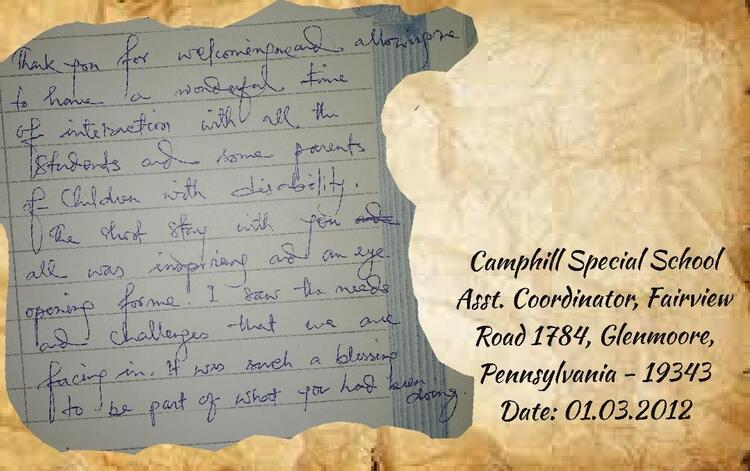 Thank you for welcoming me and allowing me
to have a wonderful time
of interaction with all the
Students and some parents
of Children with disability.
The short stay with you and
all was inspiring and an eye
opening for me. I saw the needs
and challenges that we are
facing in. It was such a blessing
to be part of what you had been doing.
Camphill Special School
Asst. Coordinator, Fairview
Road 1784, Glenmoore,
Pennsylvania - 19343
Date: 01.03.2012